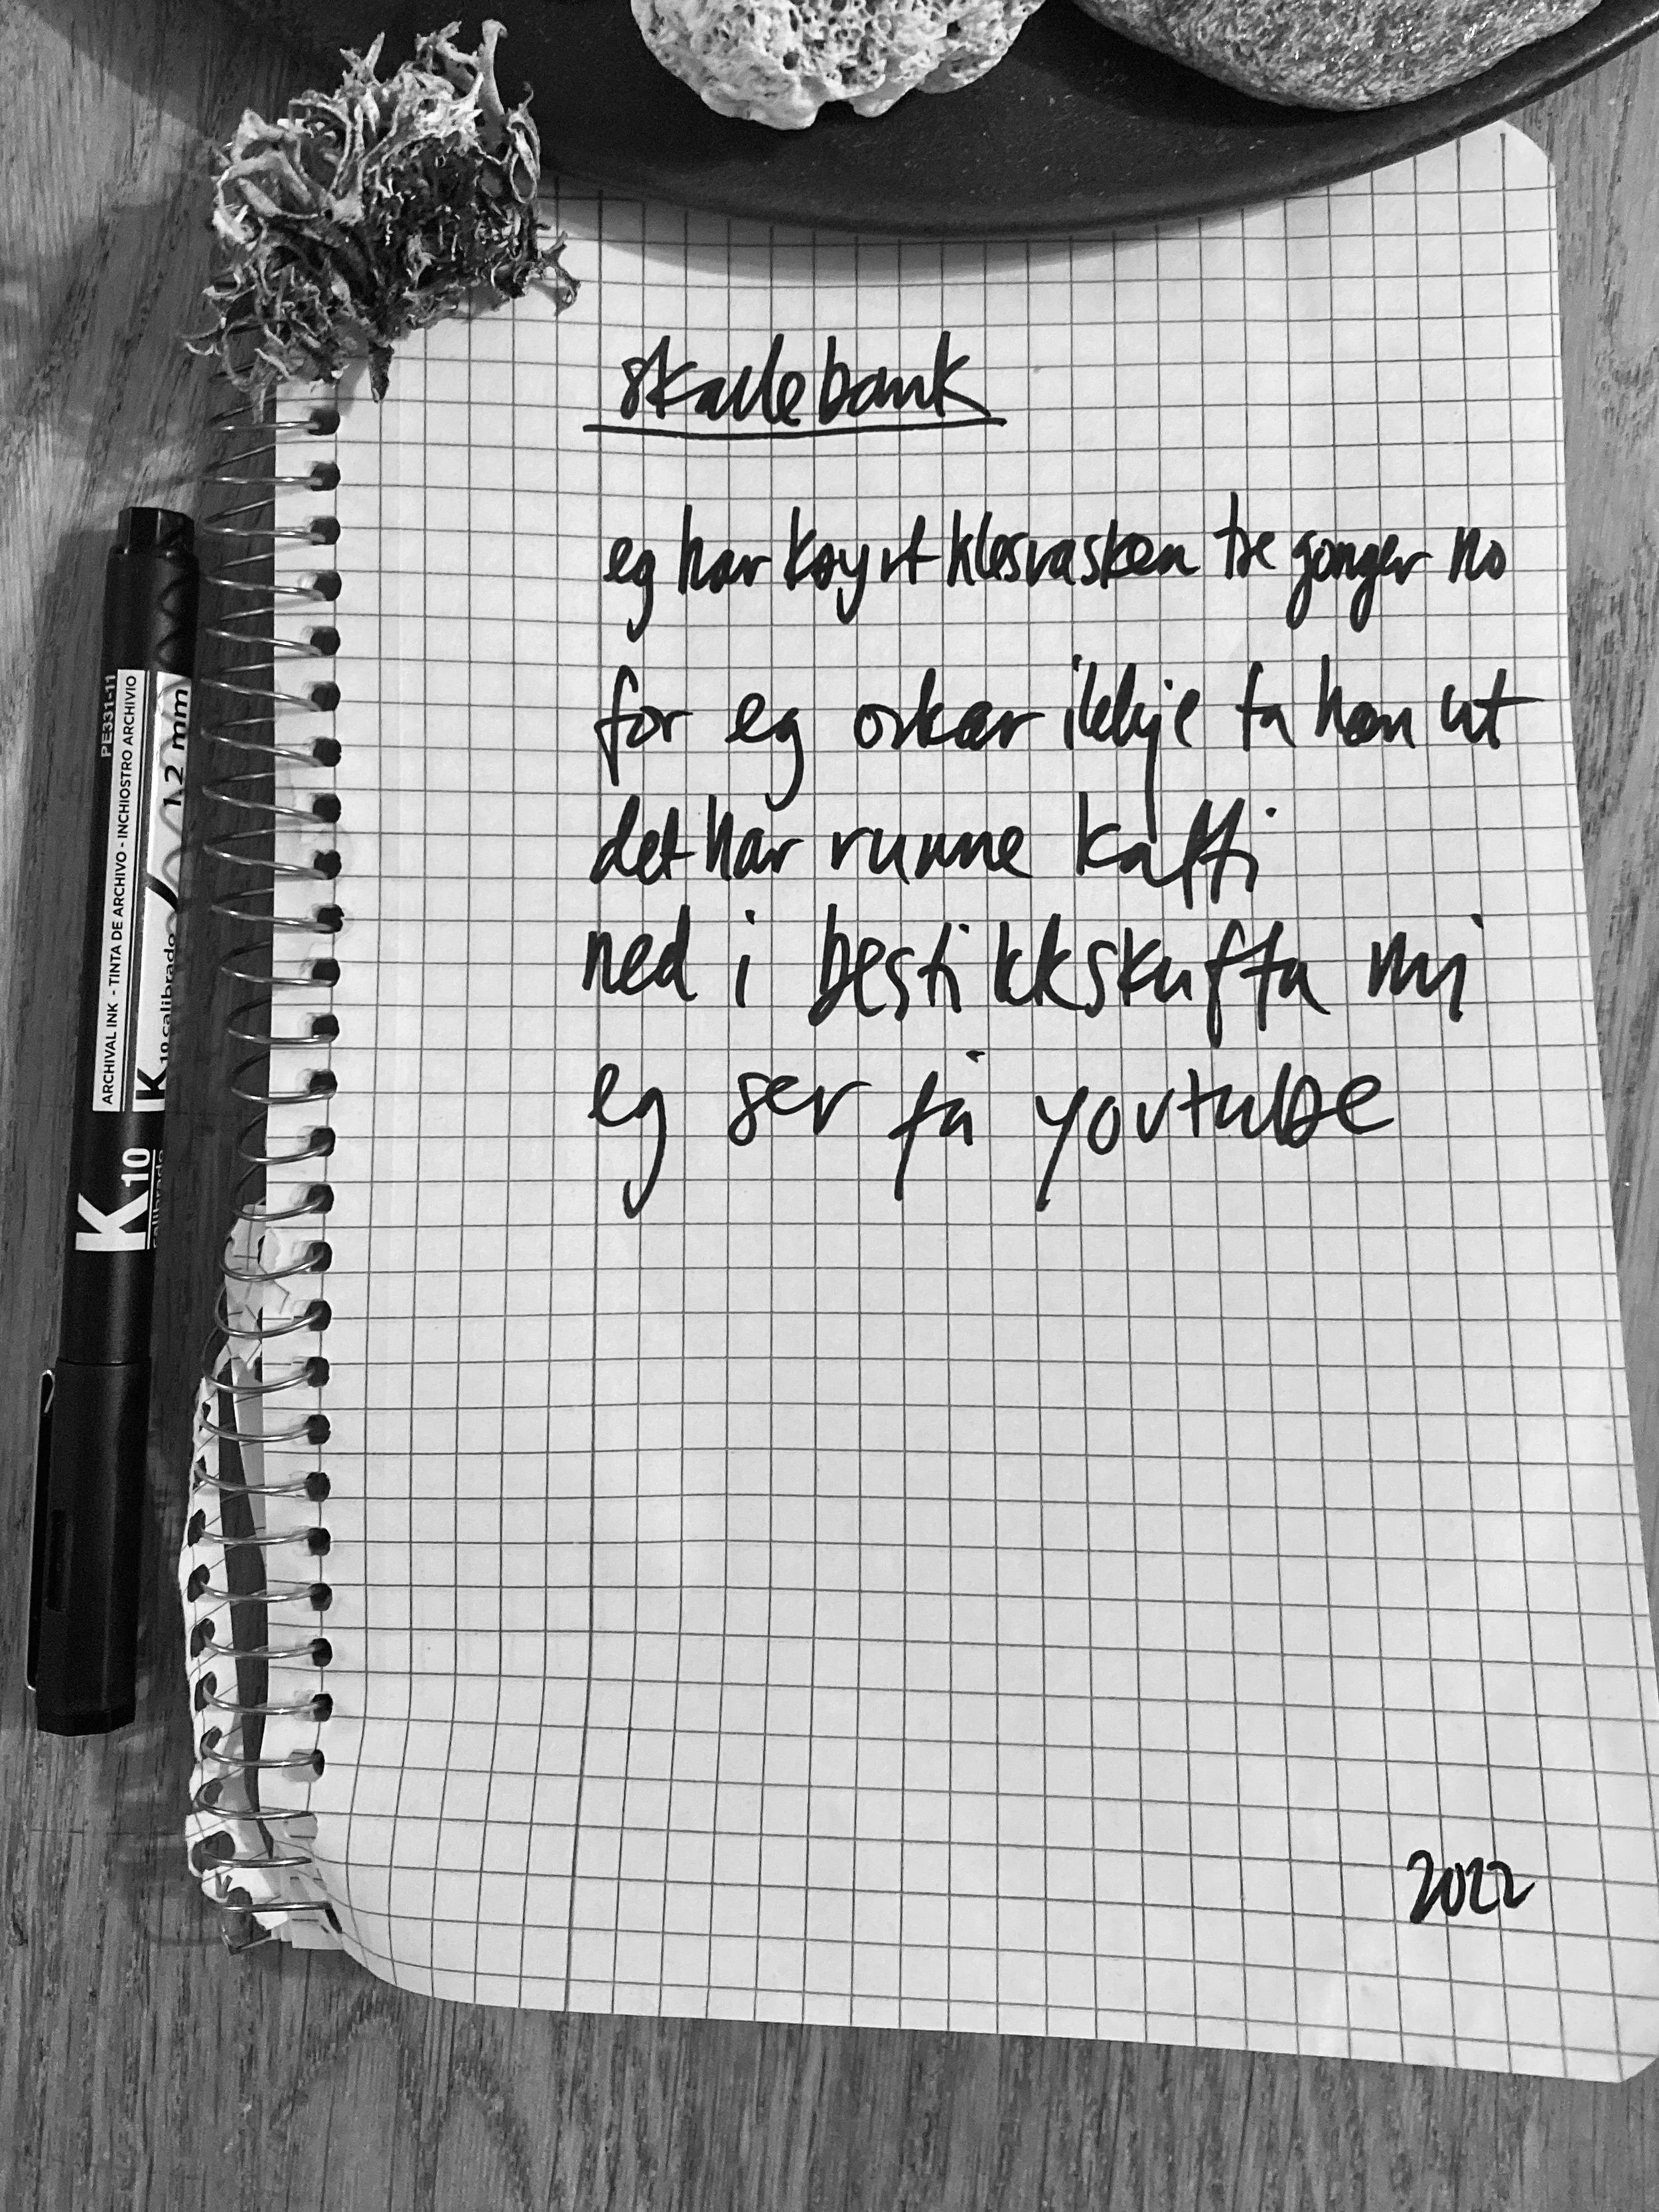 skallebank
eg har køyrt klesvasken tre gonger no
for eg orkar ikkje ta han ut
det har runne kaffi
ned i bestikkskuffa mi
eg ser på youtube
2022
PE331-11
ARCHIVAL INK - TINTA DE ARCHIVO - INCHIOSTRO ARCHIVIO
1,2 mm
K 10 calibrado
K 10
calibrado